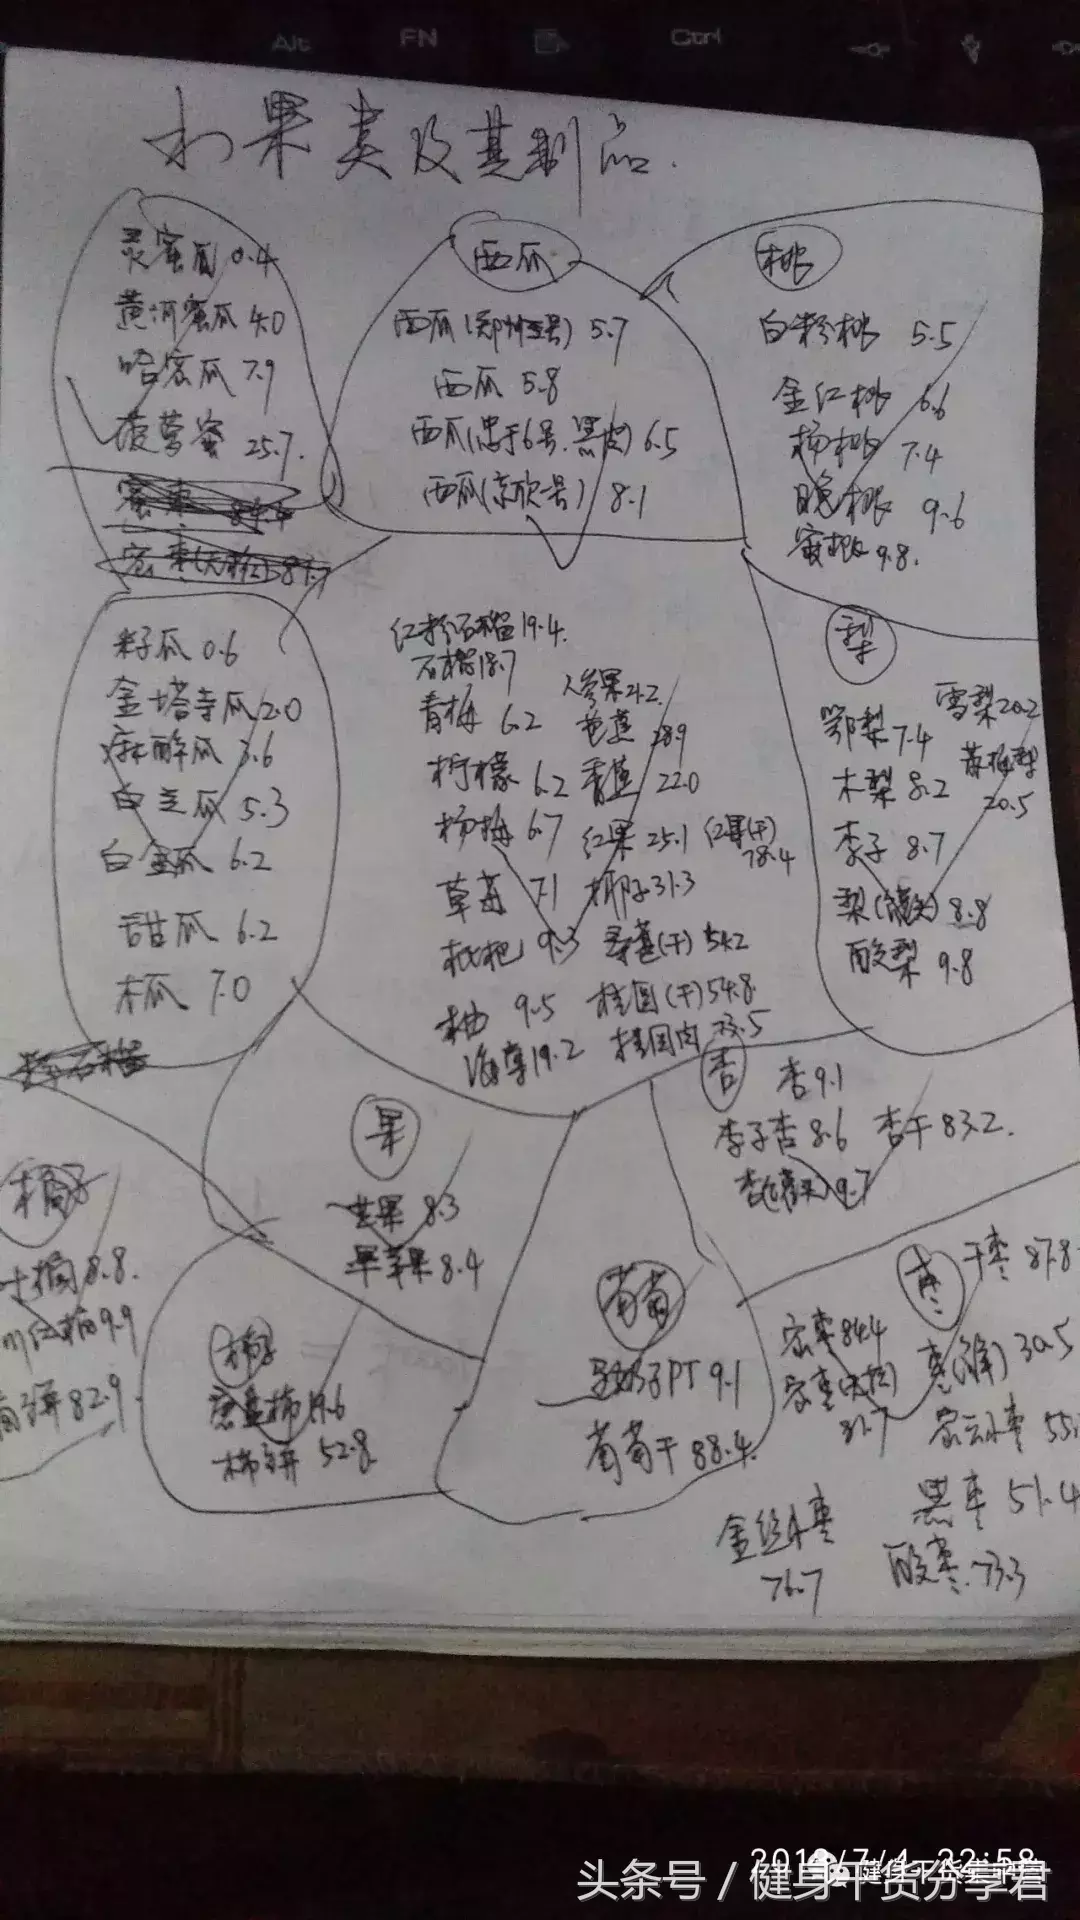 Alt FN Ctrl
水果类及其制品.
灵蜜瓜 0.4
黄河蜜瓜 4.0
哈密瓜 7.9
菠萝蜜 25.7.
西瓜
西瓜(郑州三号) 5.7
西瓜 5.8
西瓜(忠于6号.黑皮) 6.5
西瓜(京欣一号) 8.1
桃
白粉桃 5.5
金红桃 6.6
杨桃 7.4
晚桃 9.6
蜜桃 9.8.
籽瓜 0.6
金塔寺瓜 2.0
麻醉瓜 3.6
白兰瓜 5.3
白金瓜 6.2
甜瓜 6.2
木瓜 7.0
红粉石榴 19.4.
石榴 18.7
青梅 6.2
柠檬 6.2
杨梅 6.7
草莓 7.1
枇杷 9.3
柚 9.5
海棠 19.2
人参果 21.2
芭蕉 28.9
香蕉 22.0
红果 25.1 红果(干) 78.4
椰子 31.3
桑葚(干) 54.2
桂圆(干) 54.8
桂圆肉 73.5
梨
鄂梨 7.4
木梨 8.2
李子 8.7
梨(罐头) 8.8
酸梨 9.8
雪梨 20.2
苹梅梨 20.5
杏
杏 9.1
李子杏 8.6 杏干 83.2.
杏(罐头) 9.7
果
芒果 8.3
苹果 8.4
橘子
橘 8.8.
川红橘 9.9
饼 82.9
柿子
磨盘柿 19.6
柿饼 52.8
葡萄
马奶子PT 9.1
葡萄干 88.4.
枣
干枣 87.8
密枣 84.4
密枣(无核) 81.7
枣(鲜) 30.5
密云小枣 55.
黑枣 51.4
酸枣 73.3
金丝小枣 76.7
2018/7/4 22:58
头条号 / 健身干货分享君